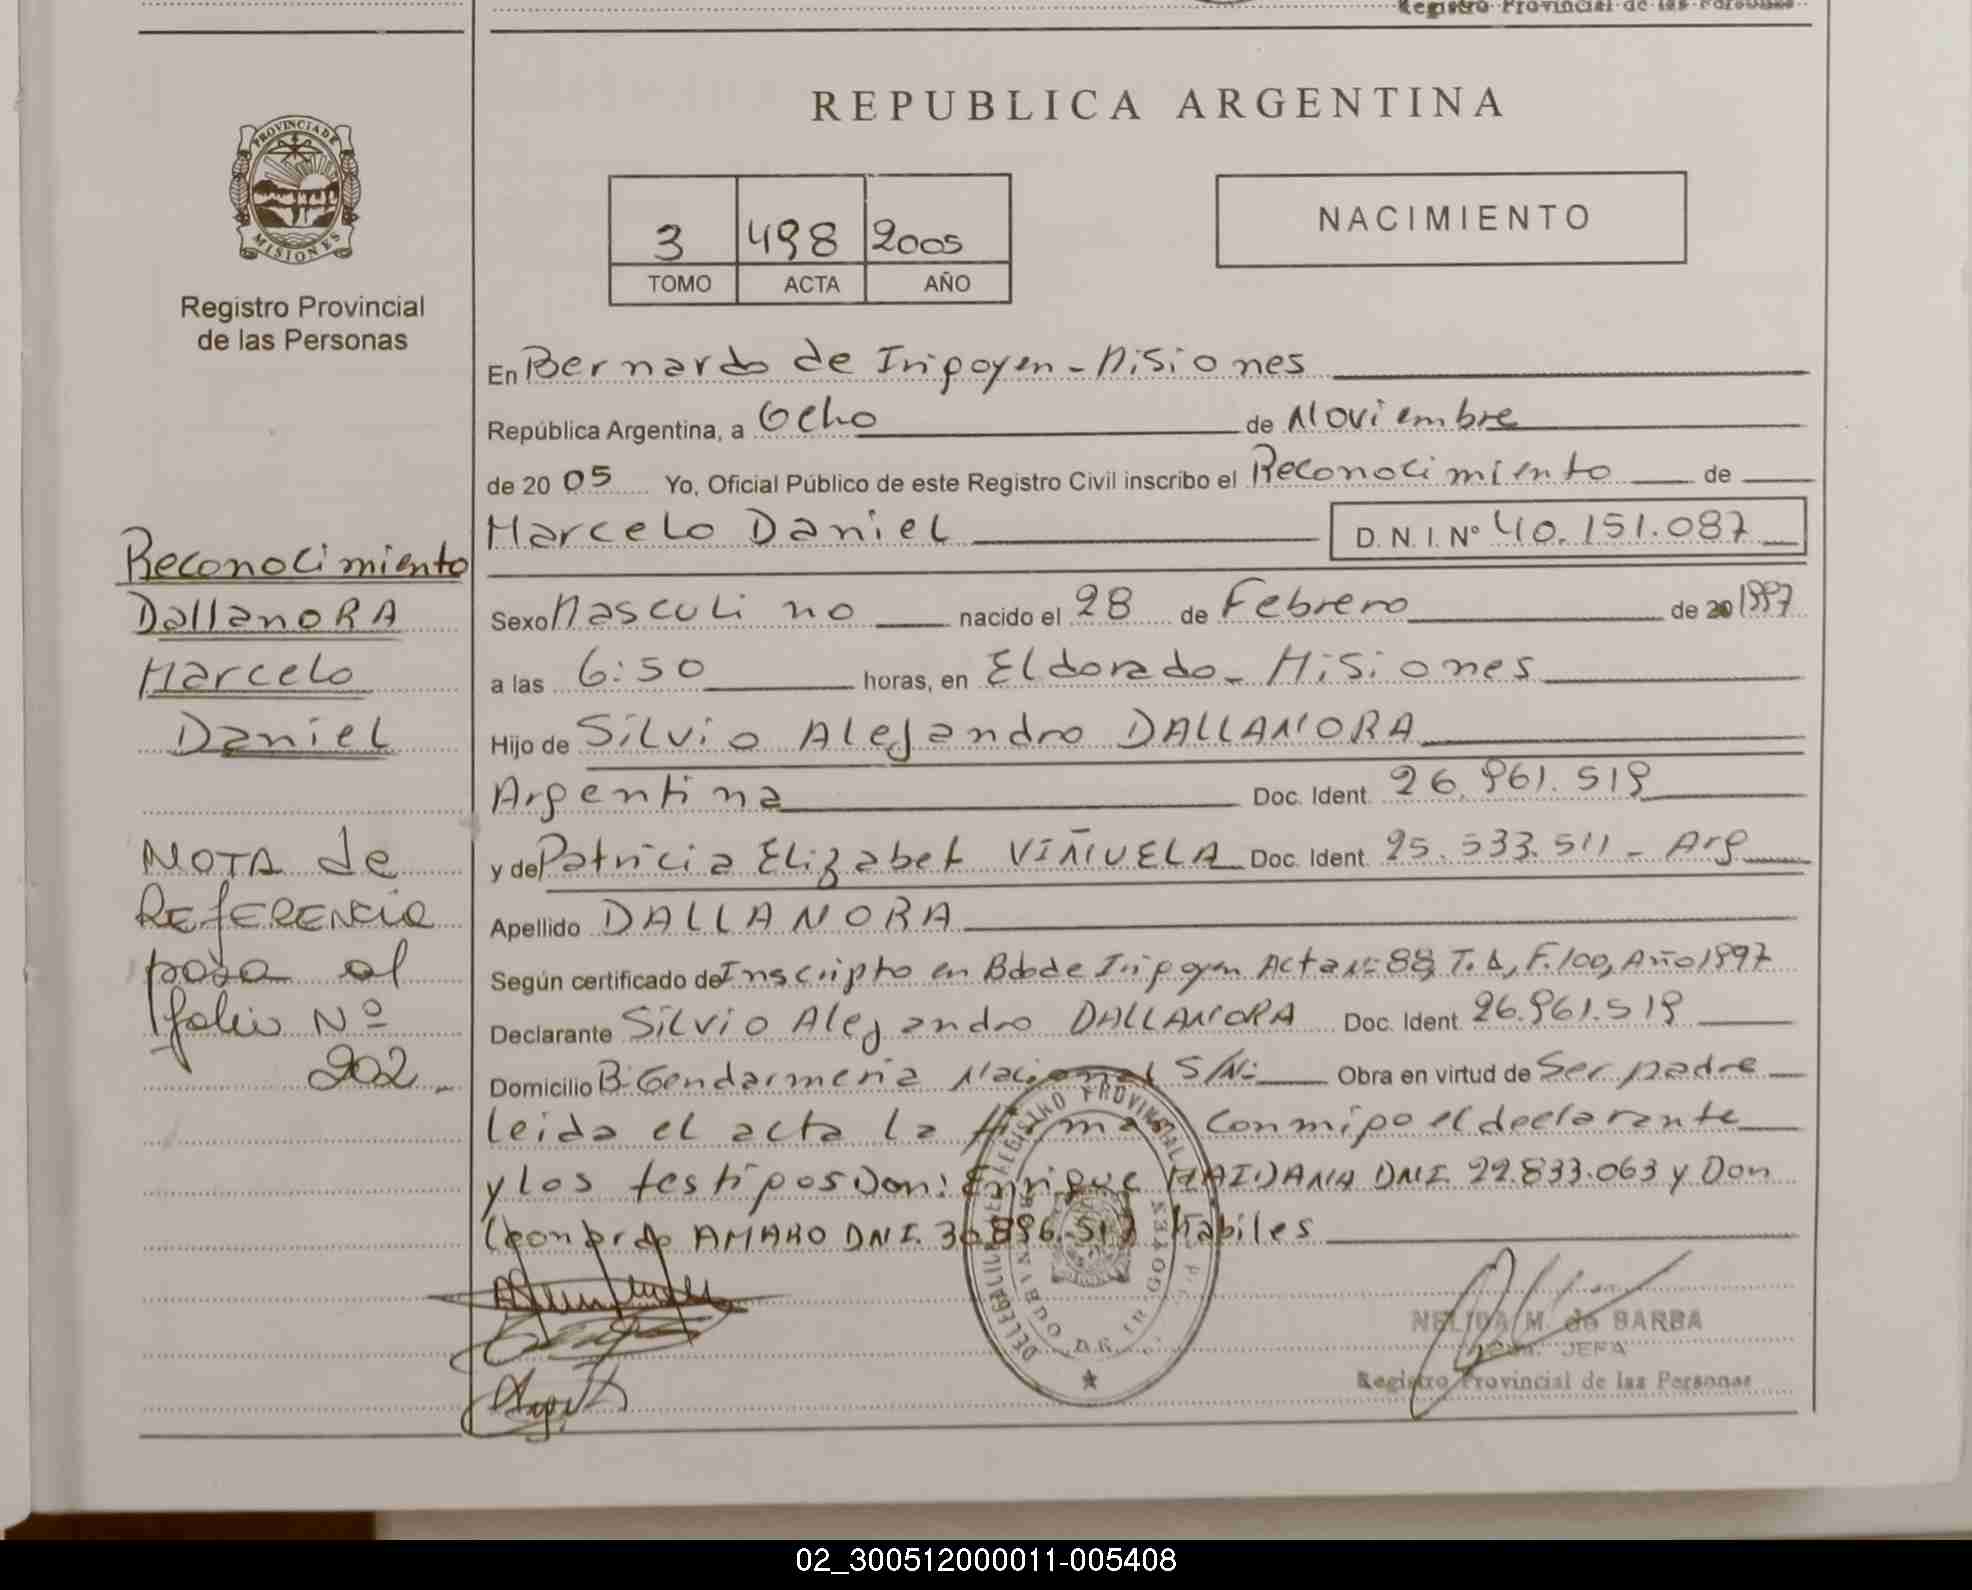 Registro Provincial de las Personas
REPUBLICA ARGENTINA
PROVINCIA DE
MISIONES
Registro Provincial
de las Personas
3 498 2005
TOMO ACTA AÑO
NACIMIENTO
En Bernardo de Irigoyen - Misiones
República Argentina, a Ocho de Noviembre
de 20 05 Yo, Oficial Público de este Registro Civil inscribo el Reconocimiento de
Marcelo Daniel D. N. I. Nº 40.151.087
Sexo Masculino nacido el 28 de Febrero de 20 1997
a las 6:50 horas, en Eldorado - Misiones
Hijo de Silvio Alejandro DALLANORA
Argentina Doc. Ident. 26.961.519
y de Patricia Elizabet VIÑUELA Doc. Ident. 25.533.511 - Arg
Apellido DALLANORA
Según certificado de Inscripto en Bdo de Irigoyen Acta Nº 88, T. , F. 100, Año 1997
Declarante Silvio Alejandro DALLANORA Doc. Ident. 26.961.519
Domicilio Bº Gendarmeria Nacional S/Nº Obra en virtud de Ser padre
leida el acta la firman conmigo el declarante
y los testigos Don: Enrique MAIDANA DNI. 22.833.063 y Don
Leonardo AMARO DNI. 30.896.517 habiles
Reconocimiento
DallanoRA
Marcelo
Daniel
NOTA de
REfERENCia
pasa al
folio Nº
202.
REGISTRO PROVINCIAL
NELIDA M. de BARBA
JEFA
Registro Provincial de las Personas
02_300512000011-005408